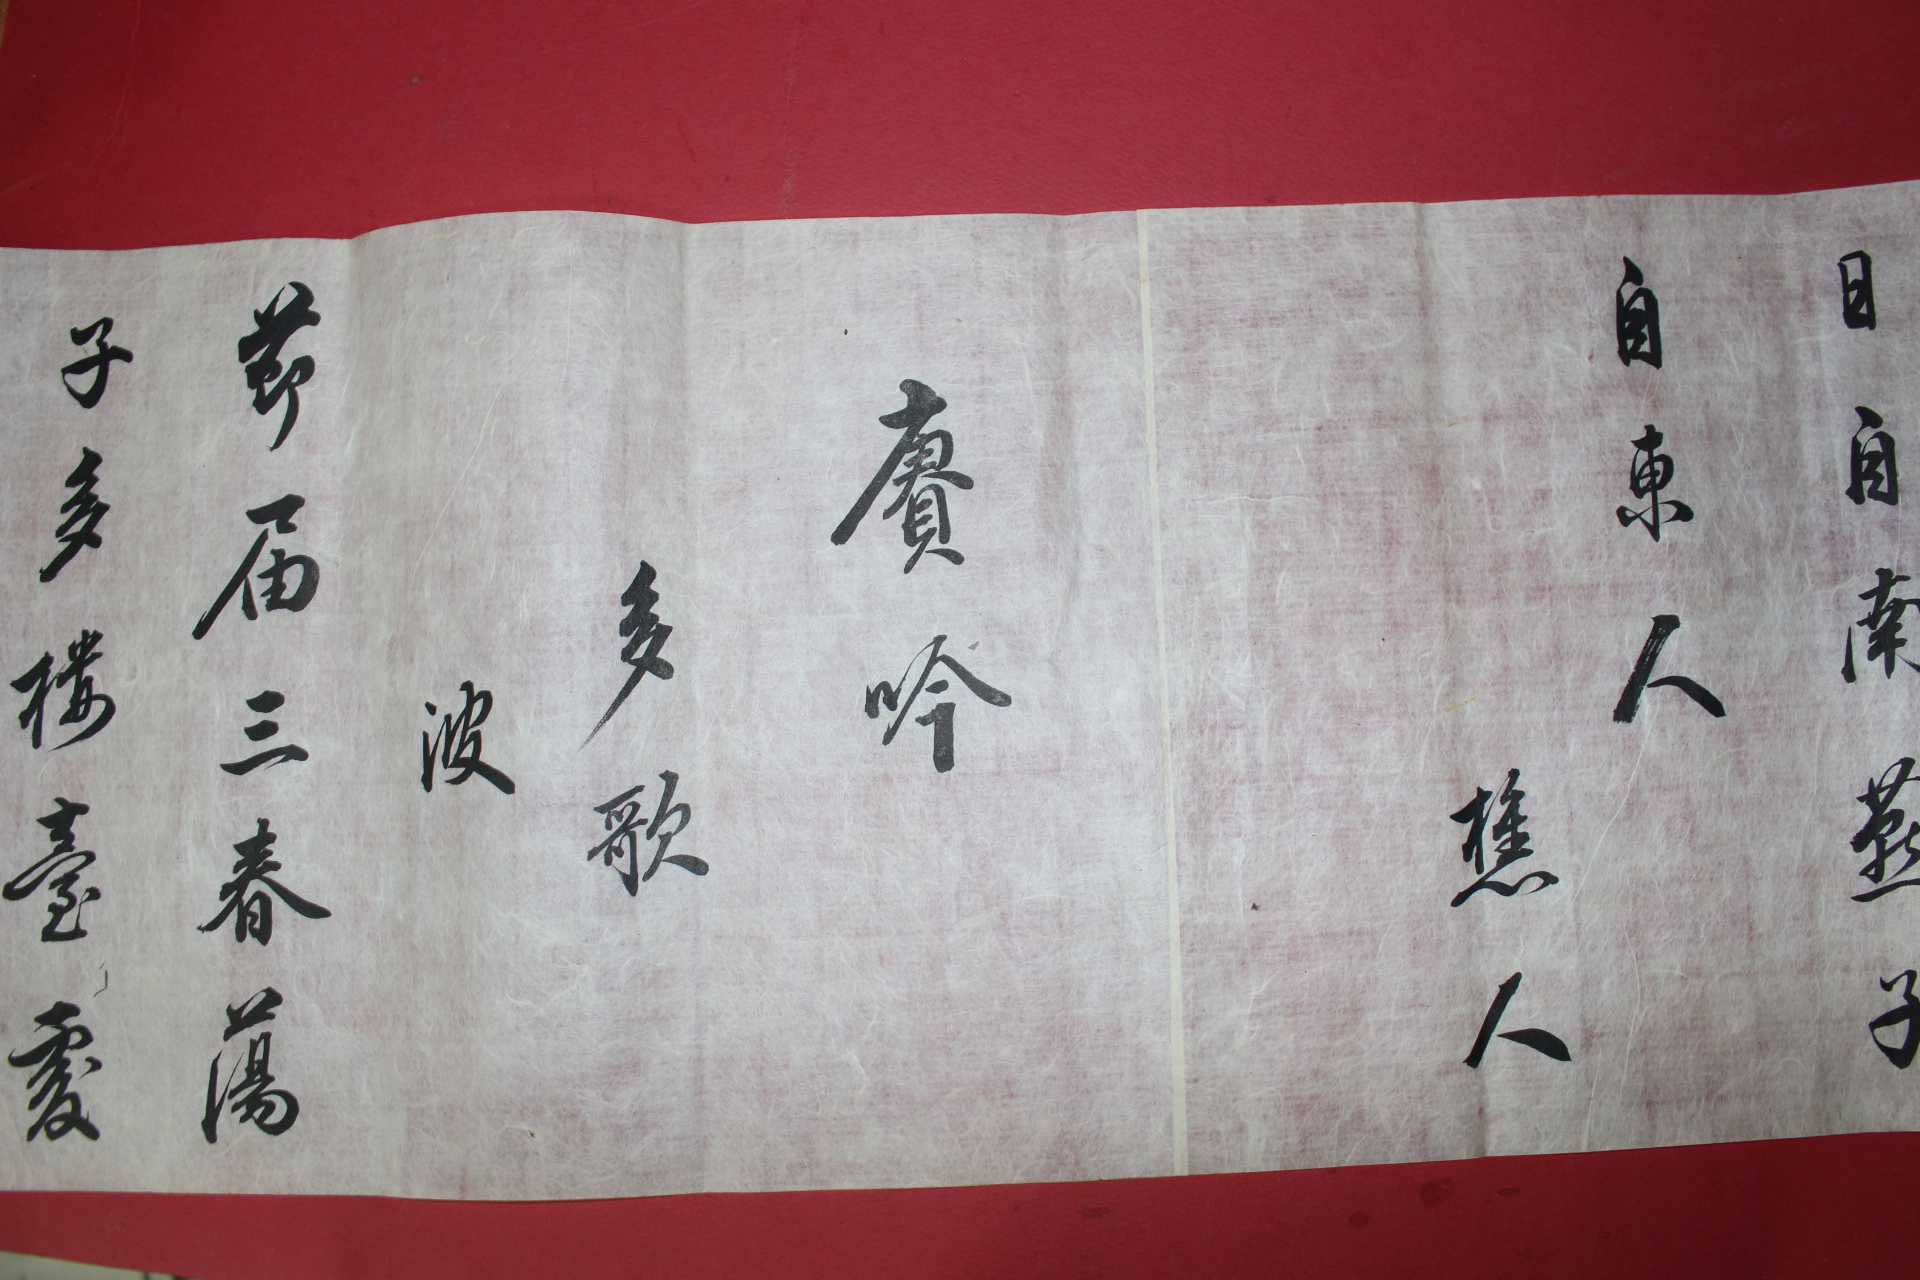 日自南燕子
自東人
樵人
賡吟
多歌
波
節届三春蕩
子多樓臺霞